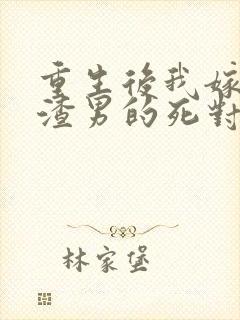 重生後我嫁
渣男的死對
林家堡